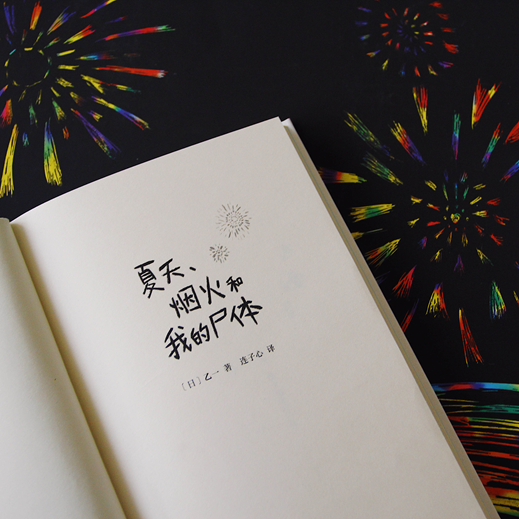 夏天、
烟火和
我的尸体
［日］乙一 著 连子心 译